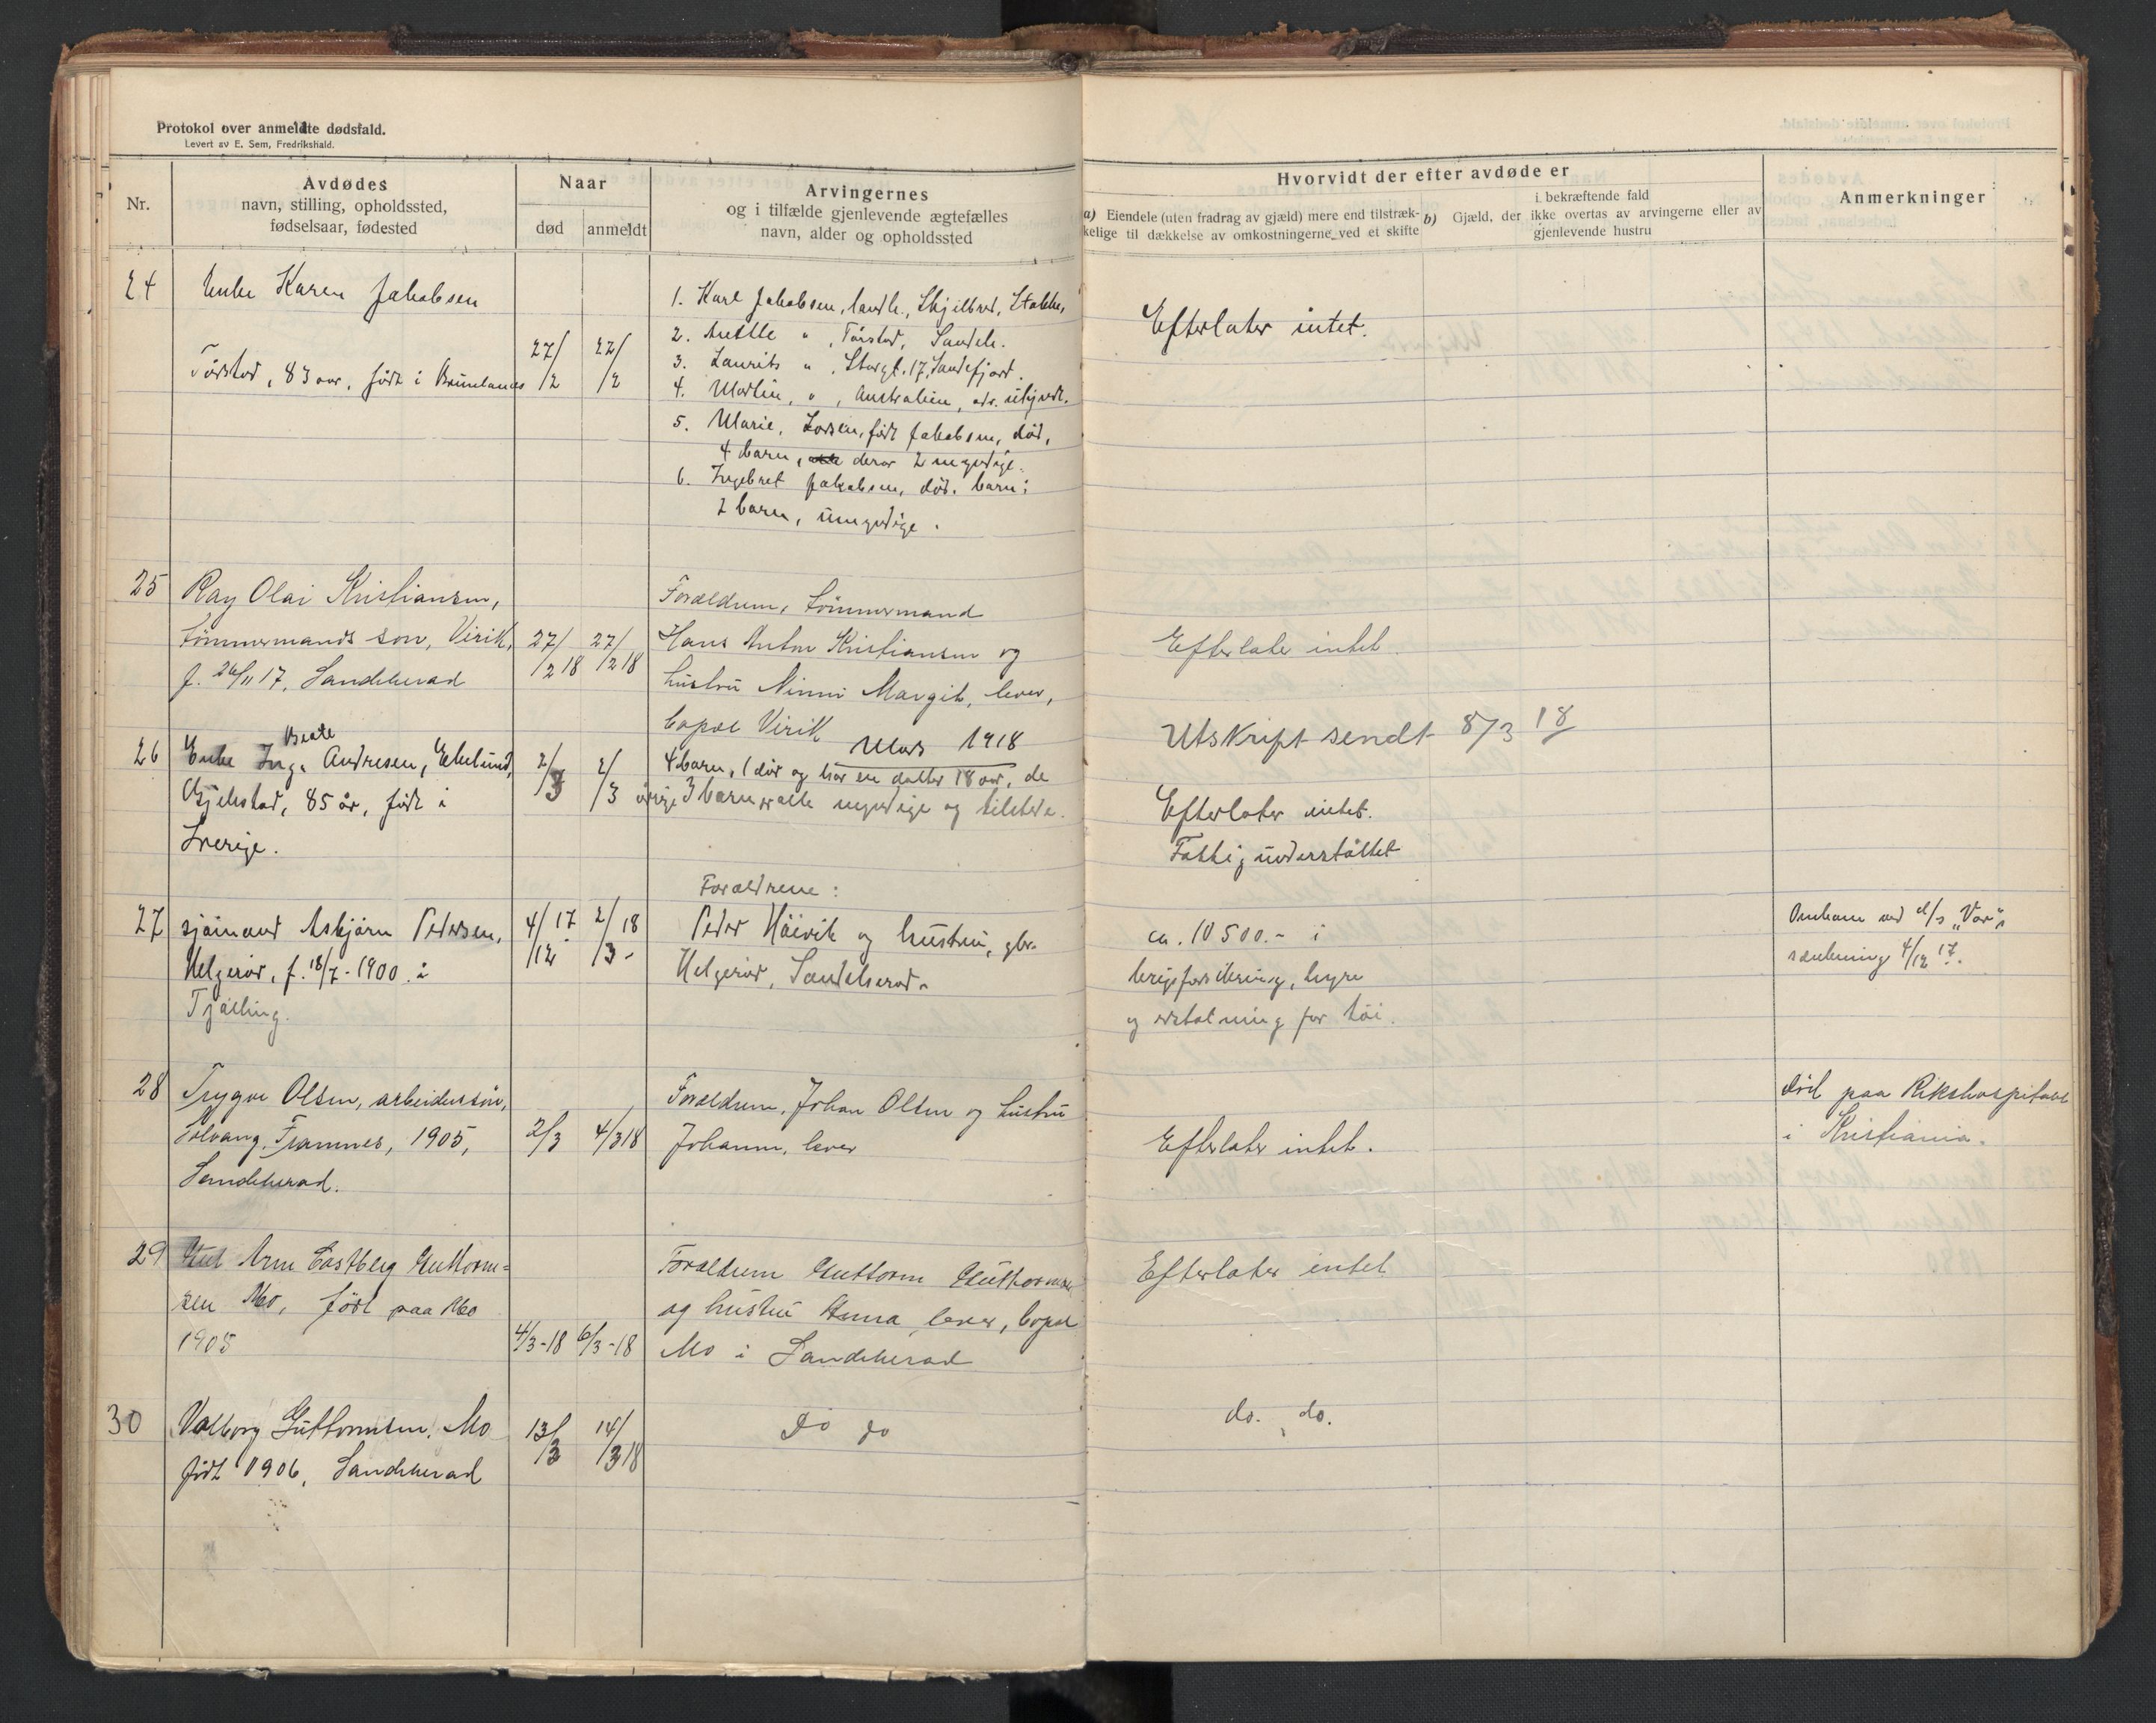 Protokol over anmeldte dødsfald.
Levert av E. Sem, Fredrikshald.
Nr.
Avdødes
navn, stilling, opholdssted,
fødselsaar, fødested
Naar
død
anmeldt
Arvingernes
og i tilfælde gjenlevende ægtefælles
navn, alder og opholdssted
Hvorvidt der efter avdøde er
a) Eiendele (uten fradrag av gjæld) mere end tilstræk-
kelige til dækkelse av omkostningerne ved et skifte
b) Gjæld, der
i bekræftende fald
ikke overtas av arvingerne eller av
gjenlevende hustru
Anmerkninger
24
Enke Karen Jakobsen
Tørstad, 83 aar, født i Brunlanes
27/2
22/2
1. Karl Jakobsen, landh., Skjelbred, Stokke,
2. Anette " , Tørstad, Sandeh.
3. Laurits " , Storgt. 17, Sandefjord.
4. Martin, " , Australien,
5. Marie, Larsen, født Jakobsen, død,
4 barn, derav 2 myndige.
6. Ingebret Jakobsen, død. barn:
2 barn, umyndige.
Efterlater intet.
25
Ray Olai Kristiansen,
tømmermands søn, Virik,
f. 26/11 17, Sandeherad
27/2 18
27/2 18
Forældrene, tømmermand
Hans Anton Kristiansen og
hustru Ninni Margit, lever,
bopæl Virik
Efterlater intet.
Mars 1918
Utskript sendt 8/3 18
26
Enke Inga Beate Andresen, Ekelund,
Gjekstad, 85 år, født i
Sverige.
2/3
2/3
4 barn, 1 død og har en datter 18 aar, de
øvrige 3 barn alle myndige og tilstede.
Efterlater intet.
Fattigunderstøttet
27
sjømand Asbjørn Pedersen,
Helgerød, f. 18/7-1900. i
Tjølling.
4/12 17
2/3 18
Forældrene:
Peder Høievik og hustru, gbr.
Helgerød, Sandeherad.
ca. 10 500.- i
krigsforsikring, hyre
og erstatning for tøi.
Omkom ved d/s "Var"s
sænkning 4/12 17.
28
Trygve Olsen, arbeidersøn,
Solvang, Framnes, 1905,
Sandeherad.
2/3
4/3 18
Forældrene, Johan Olsen og hustru
Johanne, lever
Efterlater intet.
død paa Rikshospitalet
i Kristiania.
29
Arne Guttorm=
sen Mo, født paa Mo
1905
4/3-18
6/3-18
Forældrene Guttorm Guttormsen
og hustru Anna lever, bopæl
Mo i Sandeherad
Efterlater intet
30
Valborg Guttormsen, Mo
født 1906, Sandeherad
13/3
14/3 18
Do do
do. do.